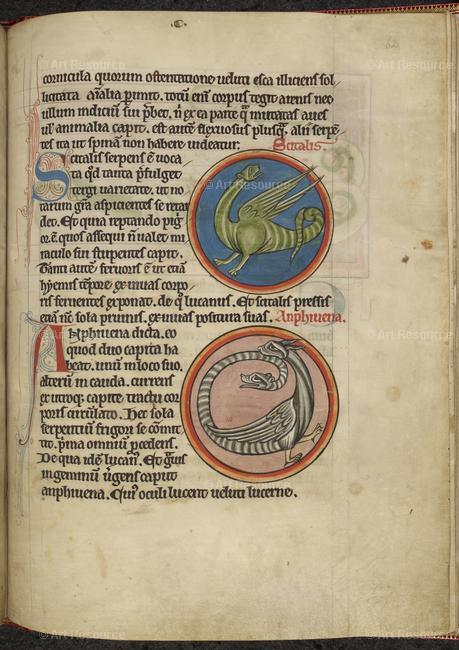 cornicula quorum ostentatione veluti esca illiciens sol
licitata aīalia perimit. totū enī corpus tegit arenis nec
ullum indiciū sui prebet. nī ex ea parte qua invitatas aves
ul' animalia capit. est autē flexuosus plusquā alii serpē
tes ita ut spinā non habere videatur. Scitalis.
Scitalis serpens ē voca
ta qd tanta prefulget
tergi varietate. ut no
tarum grā aspicientes se retar
det. Et quia reptando pig
or ē quos assequi n̄ valet. mi
raculo sui stupentes capit.
Tanti autē fervoris ē ut etiā
hyemis tēpore exuvias corpo
ris ferventes exponat. de q̄ lucanus. Et scitalis pressis
etiā nc̄ sola pruinis. exuvias positura suas. Anphivena.
Anphivena dicta. eo
quod duo capita ha
beat. unū in loco suo.
alterū in cauda. currens
ex utroque capite. tractu cor
poris circulato. Hec sola
serpentiū frigori se cōmit
tit. prima omniū procedens.
De qua idē lucan'. Et gravis
in geminū vergens caput
anphivena. Cui' oculi lucent veluti lucerne.
© Art Resource